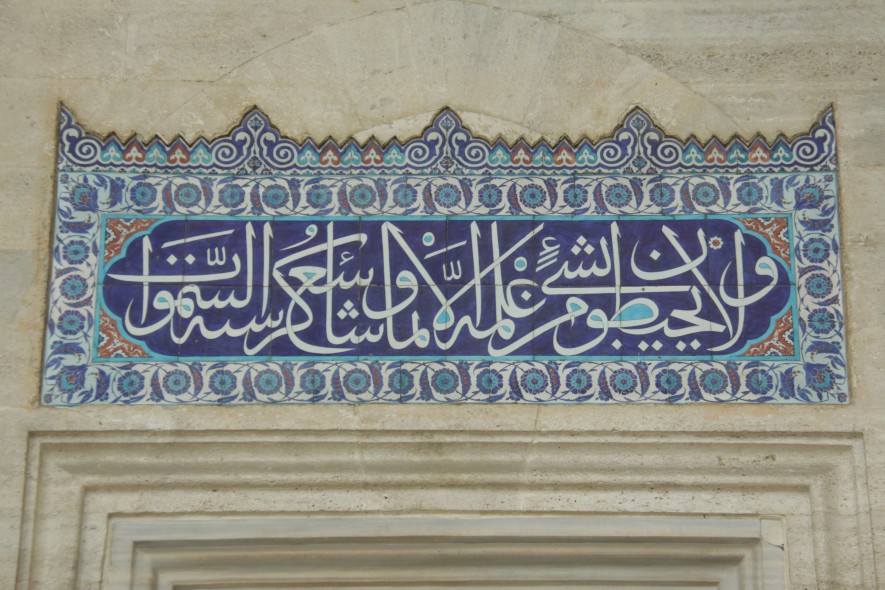 ولا يحيطون بشئ من علمه الا بما شاء وسع كرسيه السموات